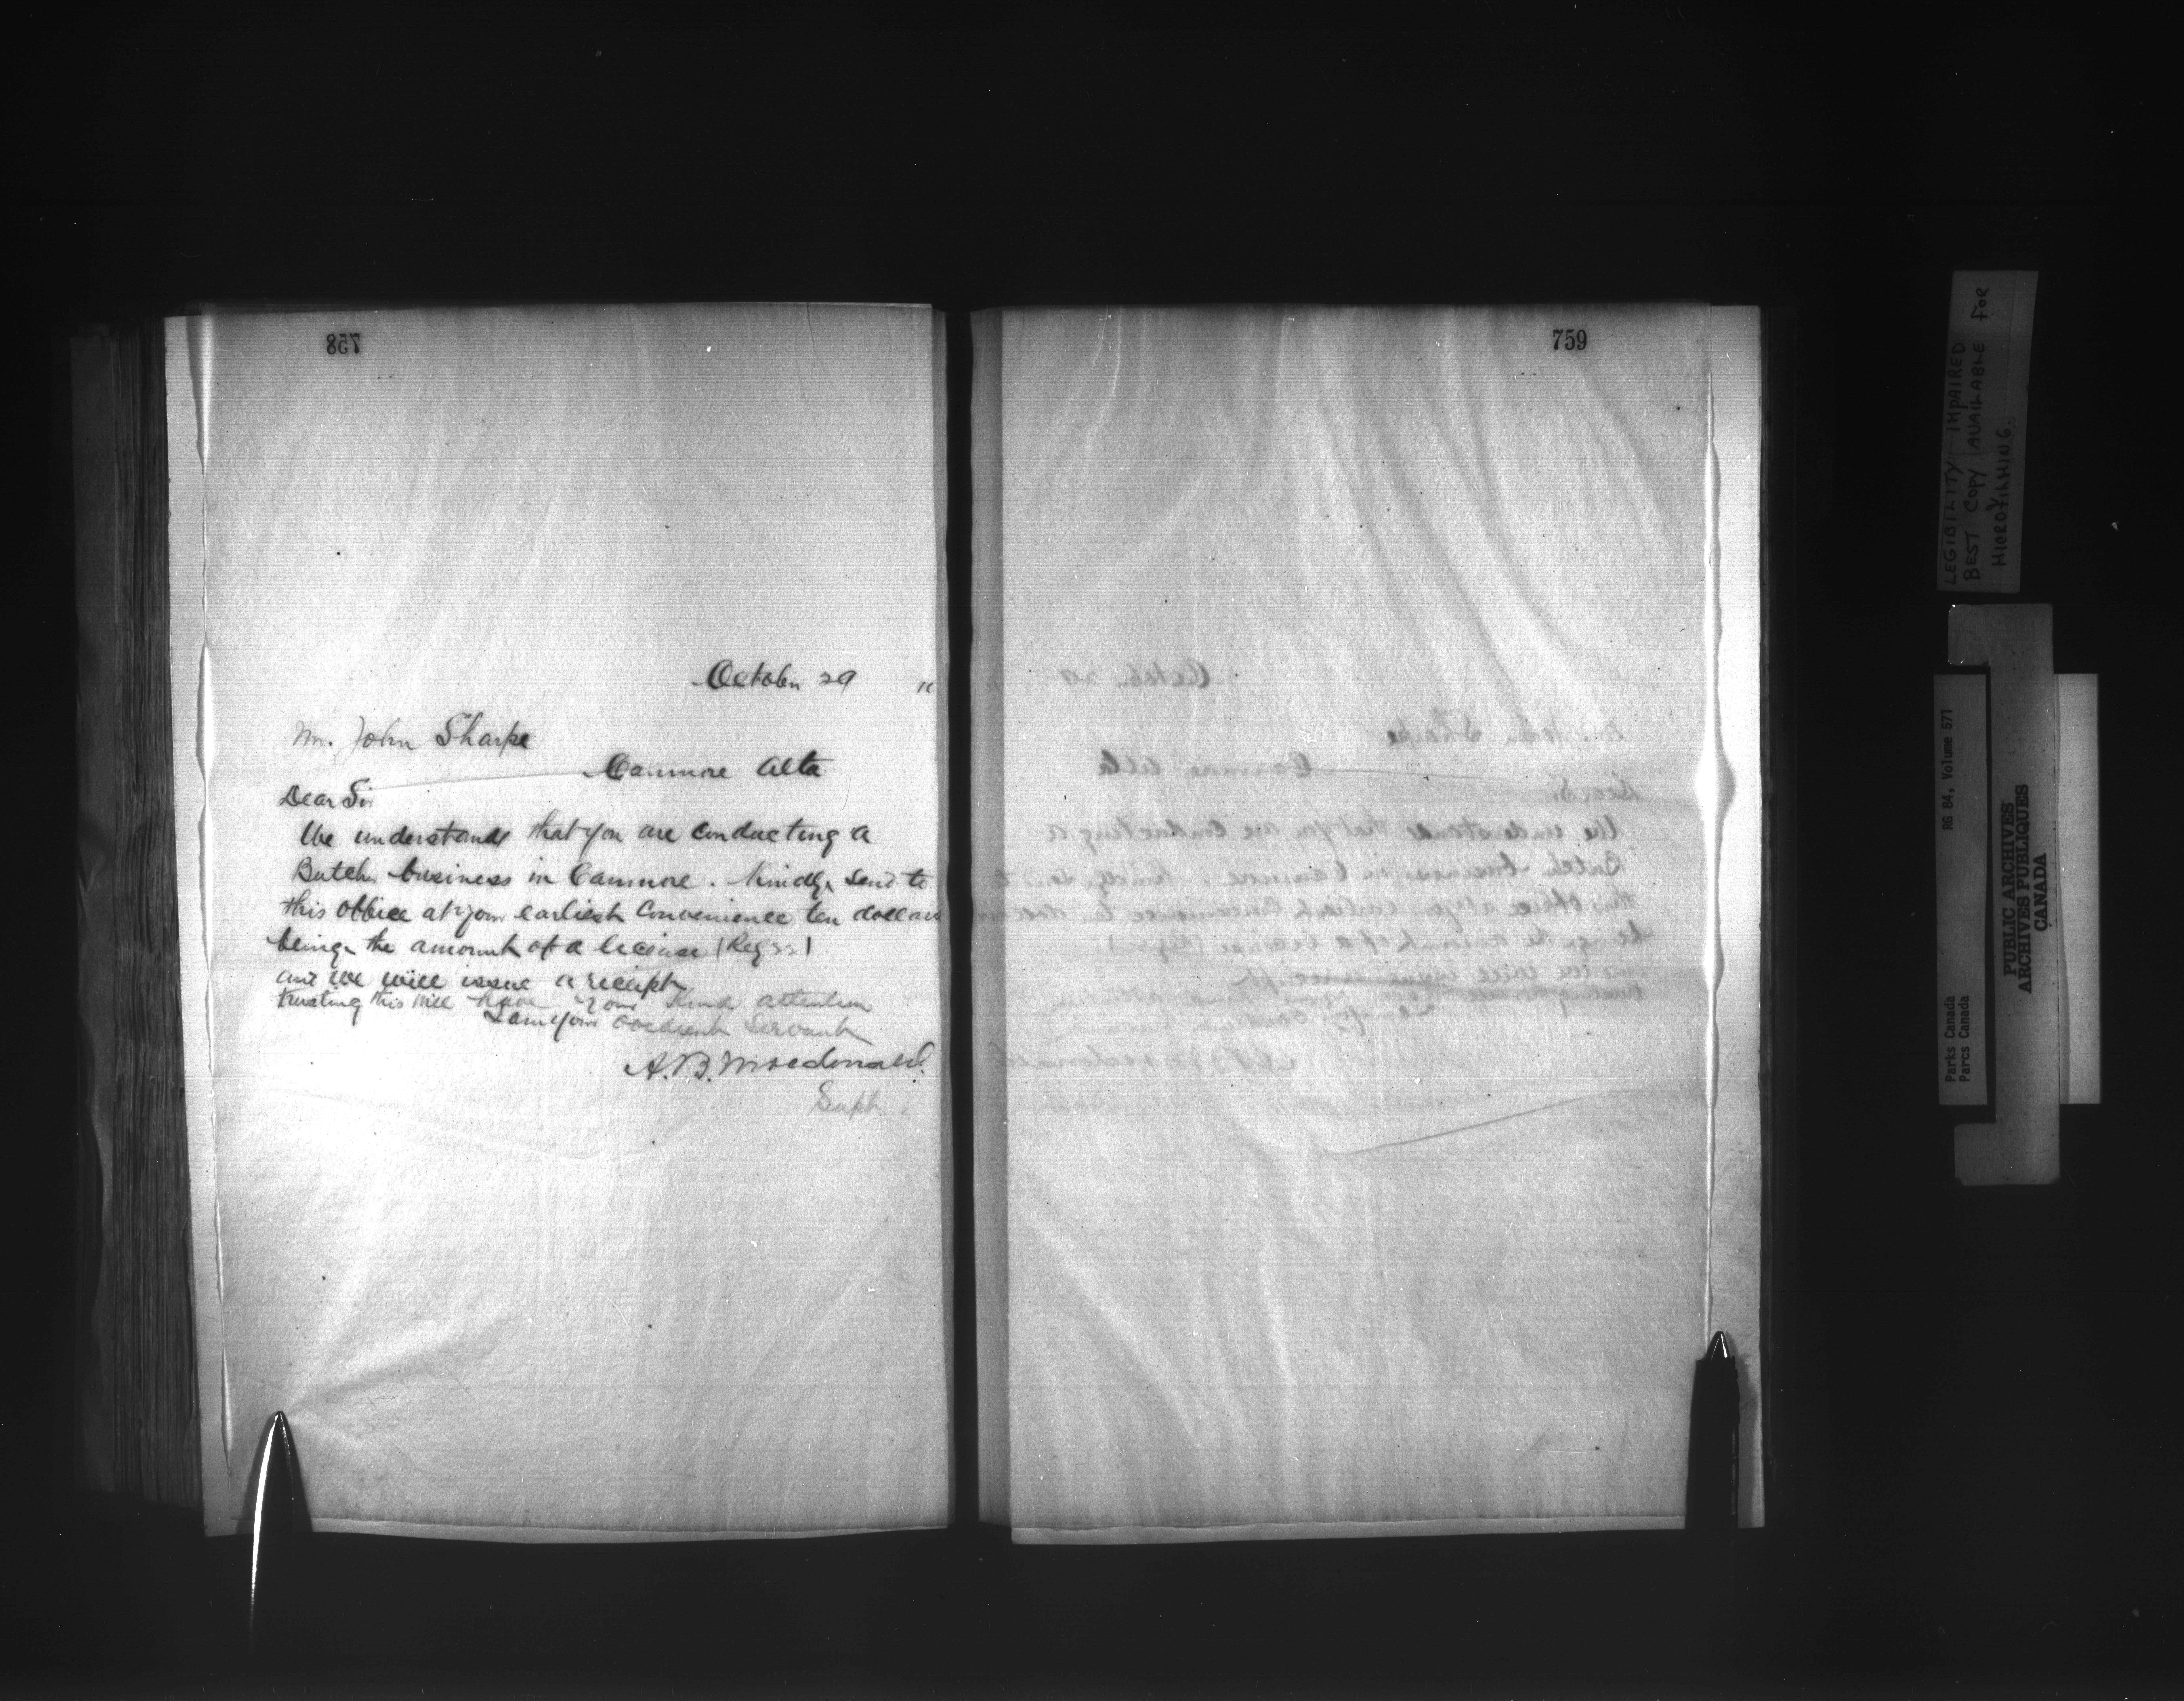 758
October 29 11
Mr. John Sharpe
Canmore Alta
Dear Sir
We understand that you are conducting a
Butcher business in Canmore. Kindly send to
this office at your earliest convenience ten dollars
being the amount of a license (Reg
and we will issue a receipt
trusting this will have your kind attention
I am your obedient Servant
A. B. Macdonald.
Supt.
759
LEGIBILITY IMPAIRED
BEST COPY AVAILABLE FOR
MICROFILMING.
RG 84, Volume 571
Parks Canada
Parcs Canada
PUBLIC ARCHIVES
ARCHIVES PUBLIQUES
CANADA